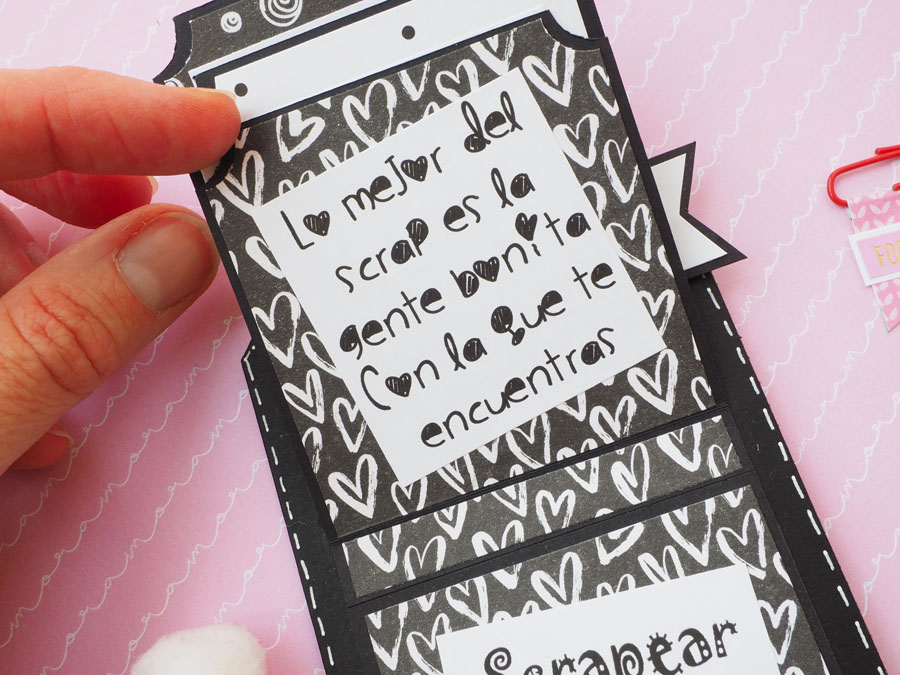 Lo mejor del
scrap es la
gente bonita
Con la que te
encuentras
Scrapear